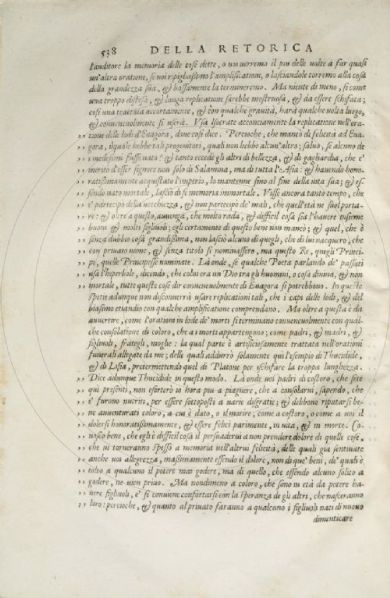 538 DELLA RETORICA
l'auditore la memoria delle cose dette, o un vorremo il piu delle volte a far quasi
un'altra oratione, se noi ripigliassimo l'amplificationi, o lasciandole torremo alla cosa
della grandezza sua, & bassamente la termineremo. Ma niente di meno, si come
una troppo distesa, & lunga replicatione sarebbe mostruosa, & da essere schifata;
così una tenerissima accortamente, & con qualche gravità, harà qualche volta luogo,
& convenevolmente si userà. Usa Isocrate attentamente la replicatione nell'ora-
tione delle lodi d'Euagora, dove così dice. Percioche, che mancò di felicità ad Eua-
gora, il quale hebbe tali progenitori, quali non hebbe alcun'altro; salvo, se alcuno de
i medesimi fusse nato? & tanto eccedè gli altri di bellezza, & di gagliardia, che e'
meritò d'esser signore non solo di Salamina, ma di tutta l'Asia: & havendo hono-
ratissimamente acquistato l'imperio, lo mantenne sino al fine della vita sua; & es-
sendo nato mortale, lasciò di se memoria immortale. Visse ancora tanto tempo, che
e' partecipò della vecchiezza, & non partecipò de' mali, che quell'età ne suol porta-
re: & oltre a questo, avvenga, che molto rada, & difficil cosa sia l'havere insieme
buoni & molti figliuoli; egli certamente di questo bene non mancò; & quel, che è
senza dubbio cosa grandissima, non lasciò alcuno di quegli, che di lui nacquero, che
con privato nome, & senza titolo si nominasse, ma questo Re, quegli Princi-
pi, quelle Principesse nominate. Là onde, se qualche Poeta parlando de' passati
usò l'hiperbole, dicendo, che colui era un Dio tra gli huomini, o cosa divina, & non
mortale, tutte queste cose dir convenevolmente di Euagora si potrebbono. In queste
spetie adunque non disconverrà usare replicationi tali, che i capi delle lodi, & del
biasimo etiandio con qualche amplificatione comprendano. Ma oltre a questo è da
avvertire, come l'orationi in lode de' morti si terminano convenevolmente con qual-
che consolatione di coloro, che a i morti appartengono; come padri, & madri, &
figliuoli, frategli, moglie: la qual parte è artificiosamente trattata nell'orationi
funerali allegate da me; delle quali addurrò solamente qui l'esempio di Thucidide,
& di Lisia, pretermettendo quel di Platone per schifare la troppa lunghezza.
Dice adunque Thucidide in questo modo. Là onde nei padri di costoro, che sete
qui presenti, non esorterò io hora più a piagnere, che a consolarvi, sapendo, che
e' furono nutriti, per essere sottoposti a varie disgratie; & debbono riputarsi be-
ne avventurati coloro, a cui è dato, o il morire, come a costoro, o come a voi il
dolersi honoratissimamente, & essere felici parimente, in vita, & in morte. Co-
nosco bene, che egli è difficil cosa il persuadervi a non prendere dolore di quelle cose,
che vi torneranno spesso a memoria nell'altrui felicità, delle quali già sentivate
anche voi allegrezza, massimamente essendo il dolore, non di que' beni, de' quali è
tolto a qualcuno il potere mai godere, ma di quello, che essendo alcuno solito a
godere, ne vien privo. Ma nondimeno a coloro, che sono in età da potere ha-
vere figliuoli, e' si conviene confortarsi con la speranza de gli altri, che nasceranno
loro: percioche, & quanto al privato faranno a qualcuno i figliuoli nati di nuovo
dimenticare